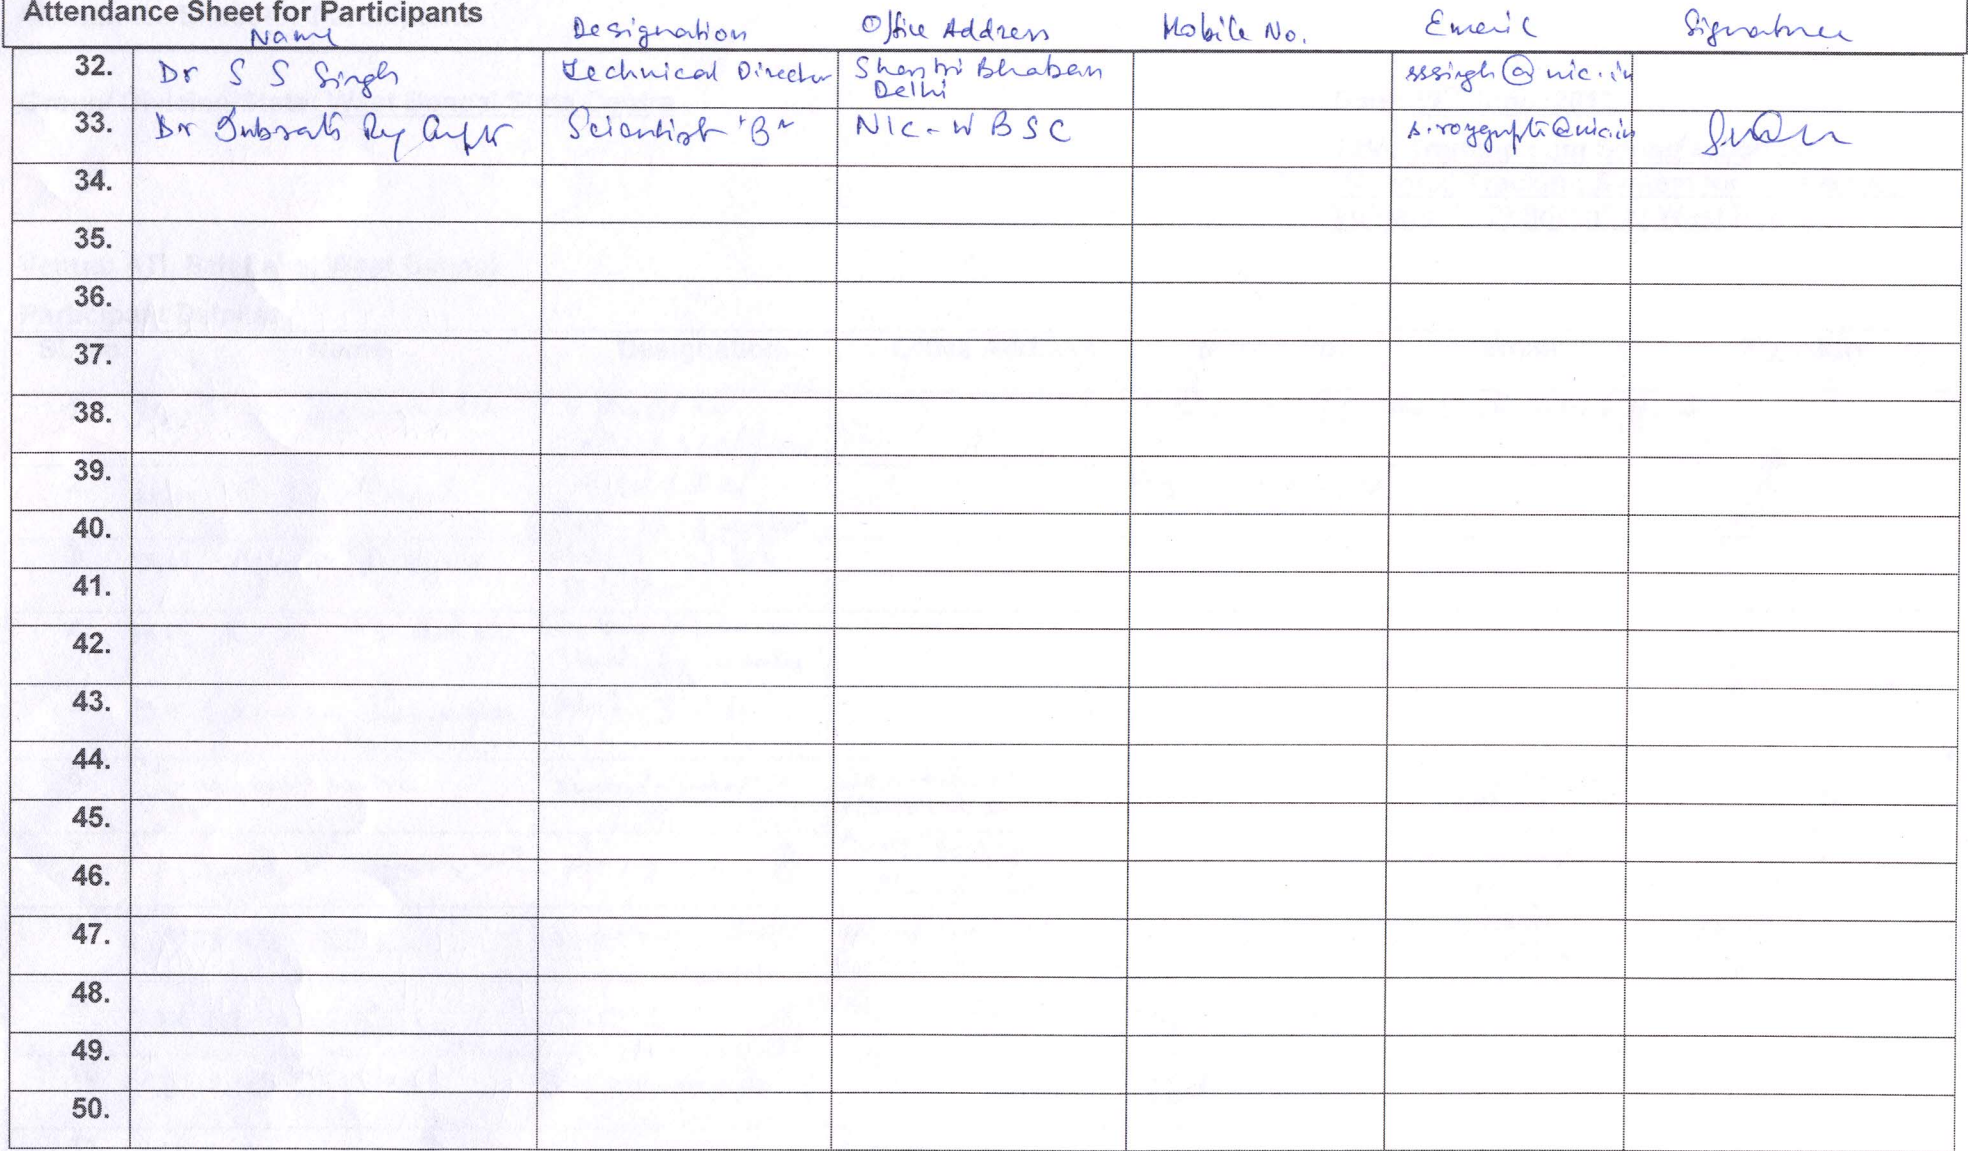 Attendance Sheet for Participants
Name Designation Office Address Mobile No. Email Signature
32. Dr S S Singh Technical Director Shastri Bhaban Delhi sssingh@nic.in
33. Dr Subrata Roy Gupta Scientist 'B' NIC-WBSC s.roygupta@nic.in
34.
35.
36.
37.
38.
39.
40.
41.
42.
43.
44.
45.
46.
47.
48.
49.
50.